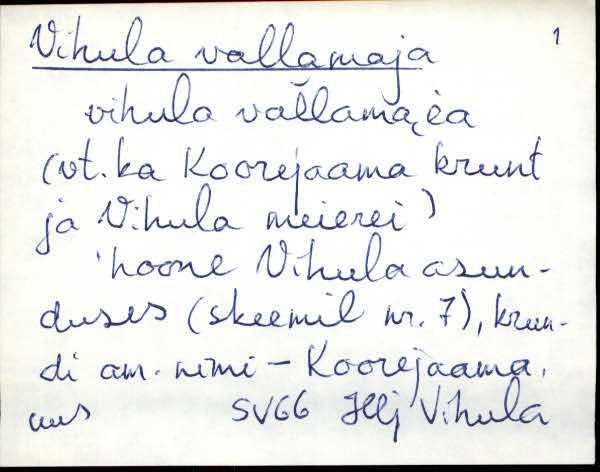 Vihula vallamaja 1
vihula vallama͔ėa
(vt. ka Koorejaama krunt
ja Vihula meierei)
'hoone Vihula asun-
duses (skeemil nr. 7), krun-
di am. nimi – Koorejaama.
uus SV66 Hlj Vihula